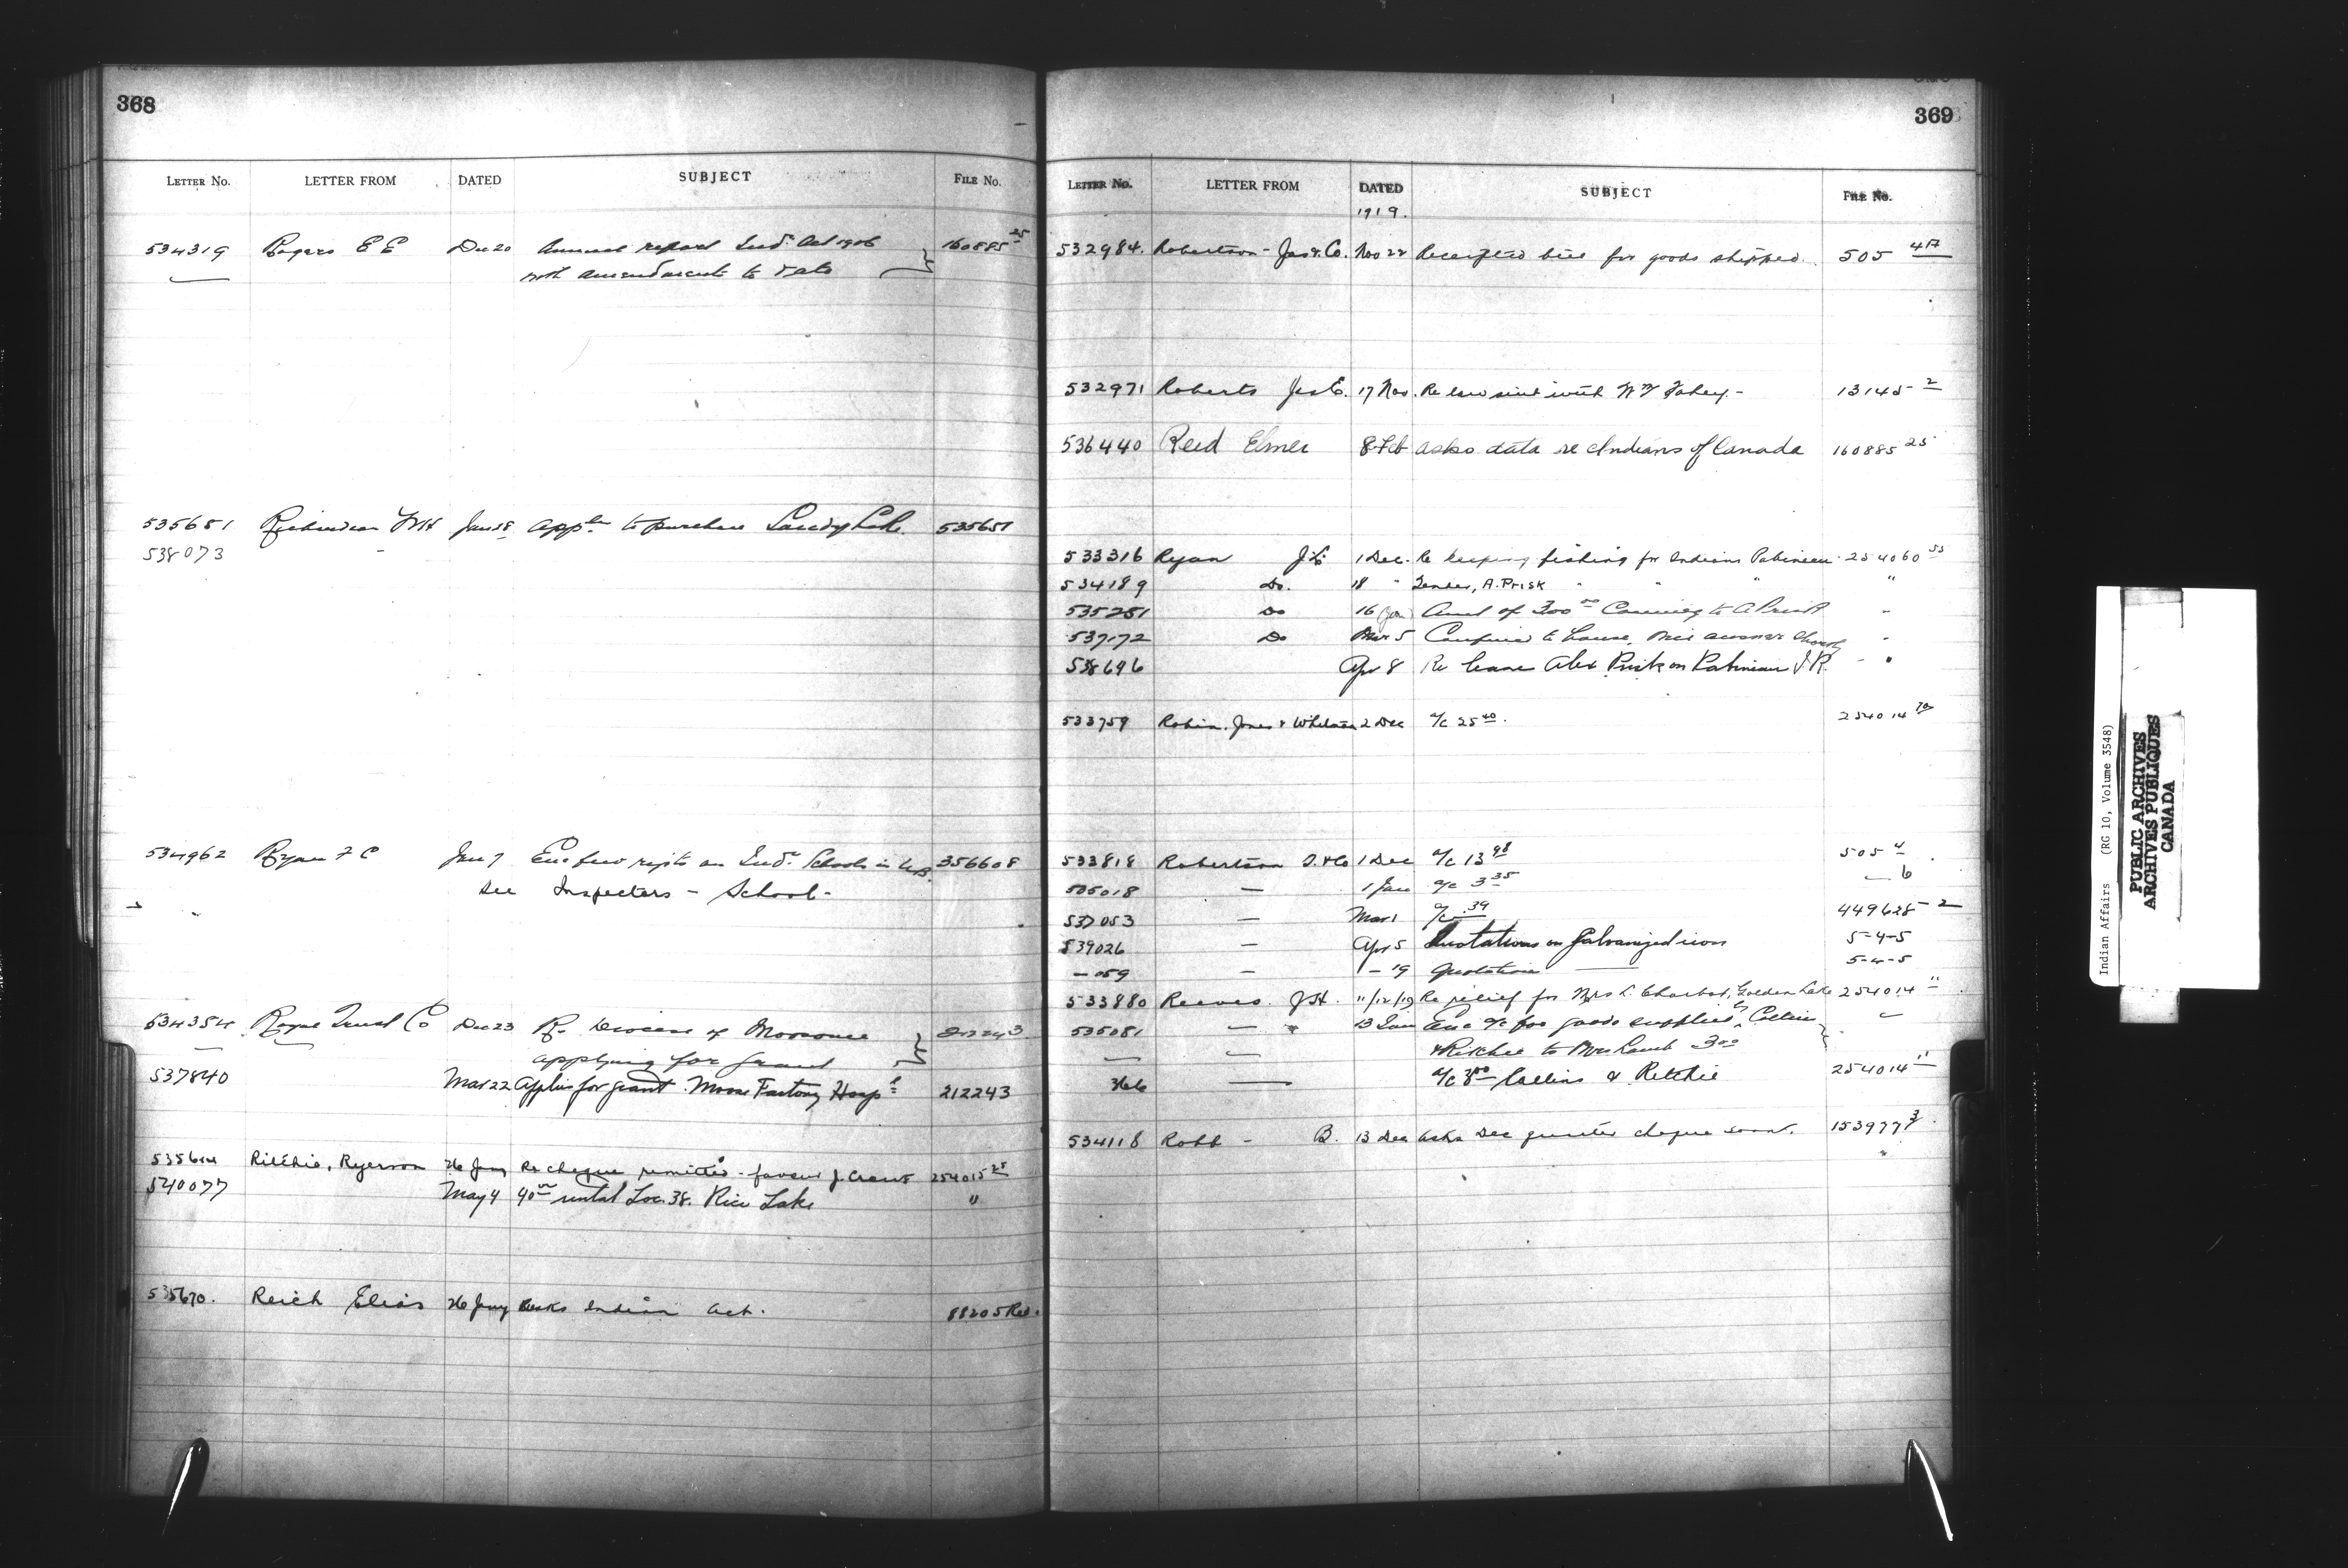 368
LETTER No. LETTER FROM DATED SUBJECT FILE No.
534319 Rogers E E Dec 20 Annual report Ind. Act 1906 160885 25
with amendments to date
535651 Richardson Jan 18 appln to purchase Sandy Lake 535651
538073
534962 Ryan F C Jan 7 Enc few repts on Indn Schools in 356608
See Inspectors - School -
534354 Royal Trust Co Dec 23 Re Diocese of Moosonee 212243
applying for grant
537840 Mar 22 applies for grant Moose Factory Hospl 212243
535614 Ritchie, Ryerson 26 Jany Re cheque remitted - favour J. Crowe 254015 25
540077 May 4 40 00 rental Loc. 38. Rice Lake "
535670. Reich Elias 26 Jany asks Indian Act. 88205 Red.
369
LETTER No. LETTER FROM DATED SUBJECT FILE No.
1919.
532984. Robertson - Jas & Co. Nov 22 Receipted bill for goods shipped. 505 4A
532971 Roberts 17 Nov. Re law suit with Fahey - 13145 - 2
536440 Reed Elmer 8 Feb asks data re Indians of Canada 160885 25
533316 Ryan 1 Dec. Re keeping fishing for Indians Pabineau 254060 53
534189 Do. 18 " Tender, A. Prisk " " " "
535251 Do 16 Jan Amt of 300 00 Coming to A Prisk "
537172 Do Mar 5 Confined to house, "
538696 Apr 8 Re lease Alex Prisk on Pabineau I.R. - "
533759 Robin, Jones & Whitman 2 Dec a/c 25 40. 254014 70
533818 Robertson J. & Co 1 Dec a/c 13 98 505 4
535018 — 1 Jan a/c 3 35 — 6
537053 — Mar 1 a/c .39 449628 - 2
539026 — Apr 5 Quotations on Galvanized iron 5-4-5
- 059 — 1 - 19 Quotation —— 5-4-5
533880 Reeves. J H. 11/12/19 Re relief for Mrs L. Charbot, Golden Lake 254014 11
535081 — " 13 Jan Enc a/c for goods supplied, Collins
& Ritchie to Mrs Lamb 3 00
366 —— a/c 3 00 Collins & Ritchie 254014 11
534118 Robb - B. 13 Dec asks Dec quarter cheque sent. 153977 3
Indian Affairs (RG 10, Volume 3548)
PUBLIC ARCHIVES
ARCHIVES PUBLIQUES
CANADA